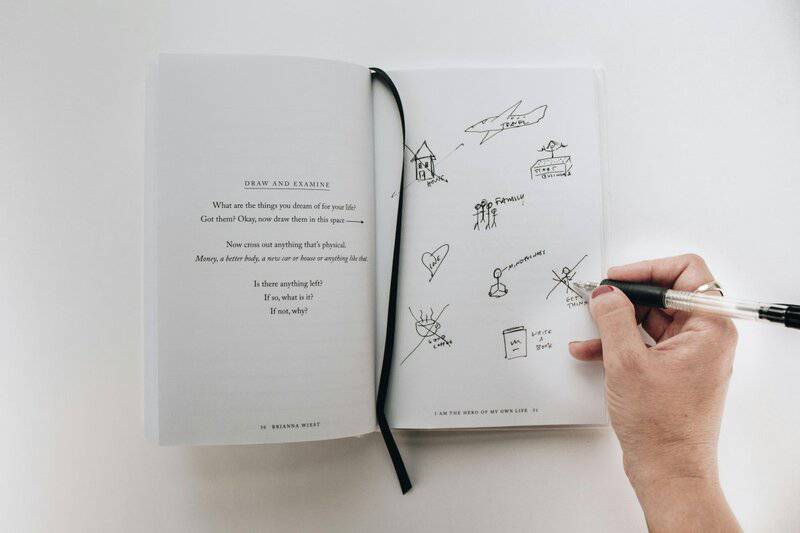 DRAW AND EXAMINE
What are the things you dream of for your life?
Got them? Okay, now draw them in this space
Now cross out anything that's physical.
Money, a better body, a new car or house or anything like that.
Is there anything left?
If so, what is it?
If not, why?
36 BRIANNA WIEST
TRAVEL
HOME
START
BUSINESS
FAMILY
LOVE
MINDFULNESS
GET
THIN
GOOD
COFFEE
WRITE
A
BOOK
I AM THE HERO OF MY OWN LIFE